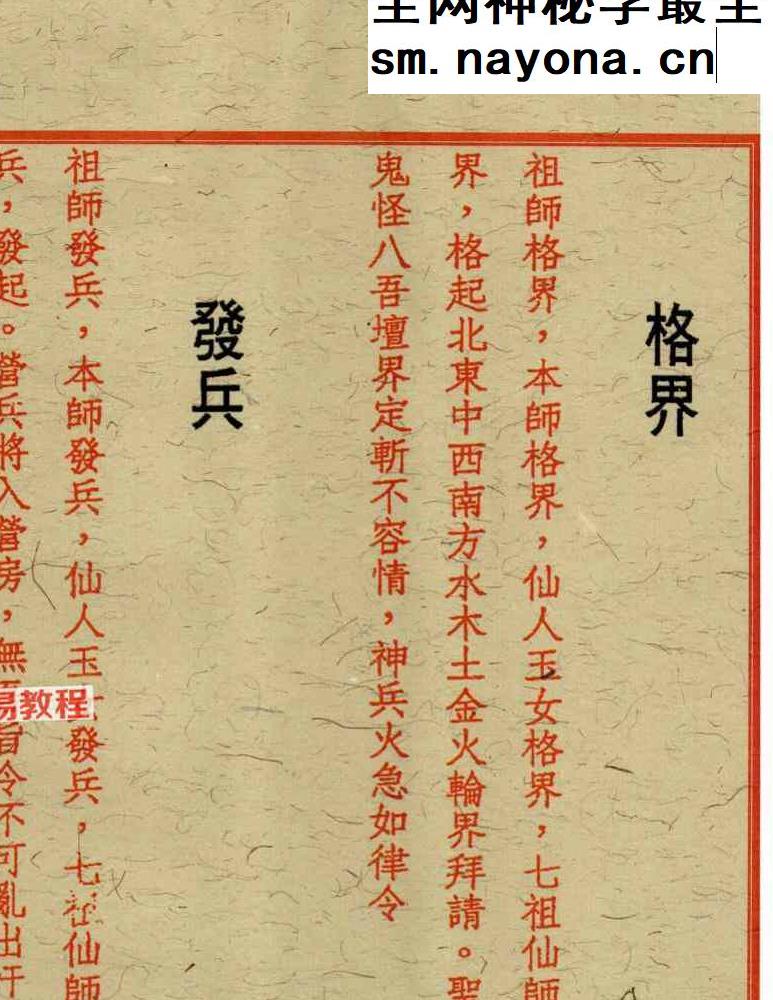 sm.nayona.cn
格界
祖師格界，本師格界，仙人玉女格界，七祖仙師
界，格起北東中西南方水木土金火輪界拜請。聖
鬼怪八吾壇界定斬不容情，神兵火急如律令
發兵
祖師發兵，本師發兵，仙人玉發兵，七祖仙師
兵，發起。營兵將入營房，無旨令不可亂出
易教程